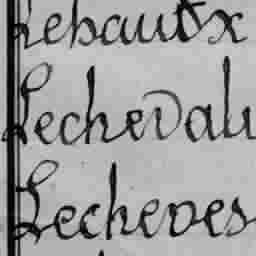 Lebautx
Lecheval
Lecheves